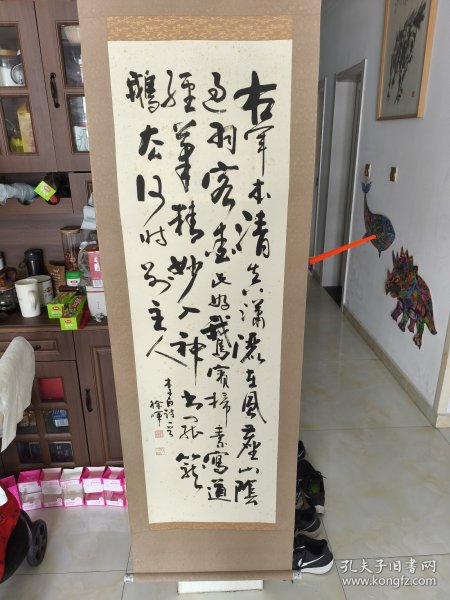 右軍本清真瀟灑在風塵山陰
過羽客愛此好鵝賓掃素寫道
經筆精妙入神書罷籠
鵝去何時別主人
李白詩一首
徐
孔夫子旧书网
www.kongfz.com